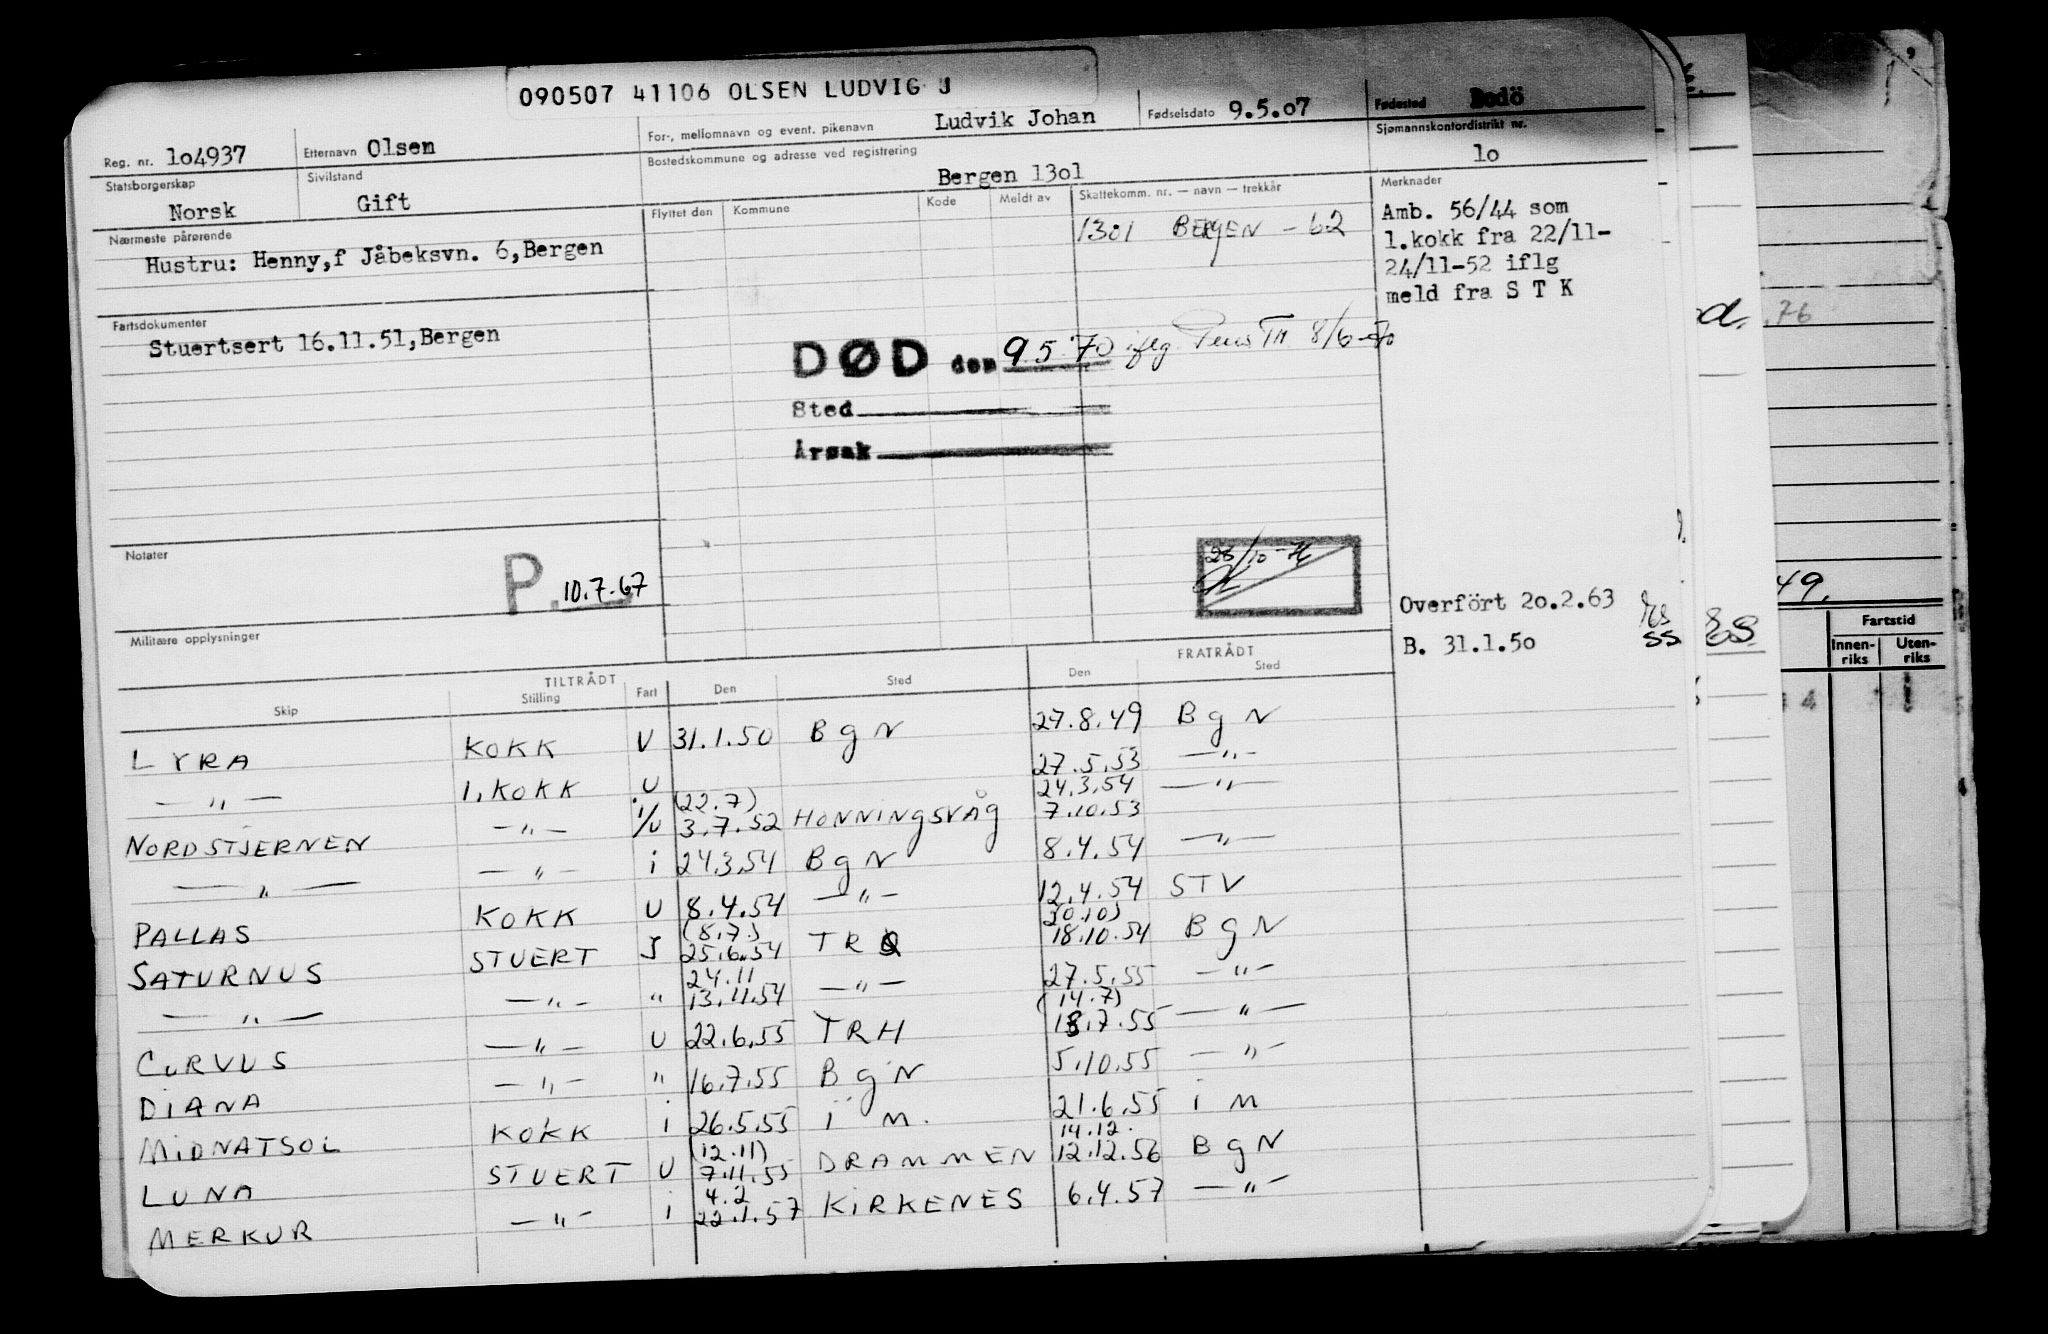 090507 41106 OLSEN LUDVIG J
Reg. nr. 1o4937
Etternavn Olsen
For-, mellomnavn og event. pikenavn Ludvik Johan
Fødselsdato 9.5.o7
Fødested Bodö
Statsborgerskap Norsk
Sivilstand Gift
Bostedskommune og adresse ved registrering Bergen 13o1
Sjømannskontordistrikt nr. 1o
Nærmeste pårørende
Hustru: Henny,f Jåbeksvn. 6,Bergen
Flyttet den Kommune Kode Meldt av Skattekomm. nr. — navn — trekkår
13o1 BERGEN - 62
Merknader
Amb. 56/44 som
1.kokk fra 22/11-
24/11-52 iflg
meld fra S T K
Fartsdokumenter
Stuertsert 16.11.51,Bergen
DØD den 9.5 70 iflg Pens Tr. 8/6-70
Sted
Årsak
Notater
P. 10.7.67
Militære opplysninger
Overfört 2o.2.63
B. 31.1.5o
SS
49.
Fartstid
Innen-riks Uten-riks
76
TILTRÅDT FRATRÅDT
Skip Stilling Fart Den Sted Den Sted
LYRA KOKK U 31.1.50 BgN 27.8.49 BgN
—"— 1.KOKK U 27.5.53 —"—
NORDSTJERNEN —"— i/U (22.7) 3.7.52 HONNINGSVÅG 24.3.54 7.10.53 —"—
—"— —"— i 24.3.54 BgN 8.4.54 —"—
PALLAS KOKK U 8.4.54 —"— 12.4.54 STV
SATURNUS STUERT (8.7.) 25.6.54 (30.10) 18.10.54 BgN
—"— —"— " 24.11 13.11.54 —"— 27.5.55 —"—
CORVUS —"— U 22.6.55 TRH (14.7) 18.7.55 —"—
DIANA —"— " 16.7.55 BgN 5.10.55 —"—
MIDNATSOL KOKK i 26.5.55 i M. 21.6.55 i M
LUNA STUERT U (12.11) 7.11.55 DRAMMEN 14.12. 12.12.56 BgN
MERKUR —"— i 4.2 22.1.57 KIRKENES 6.4.57 —"—